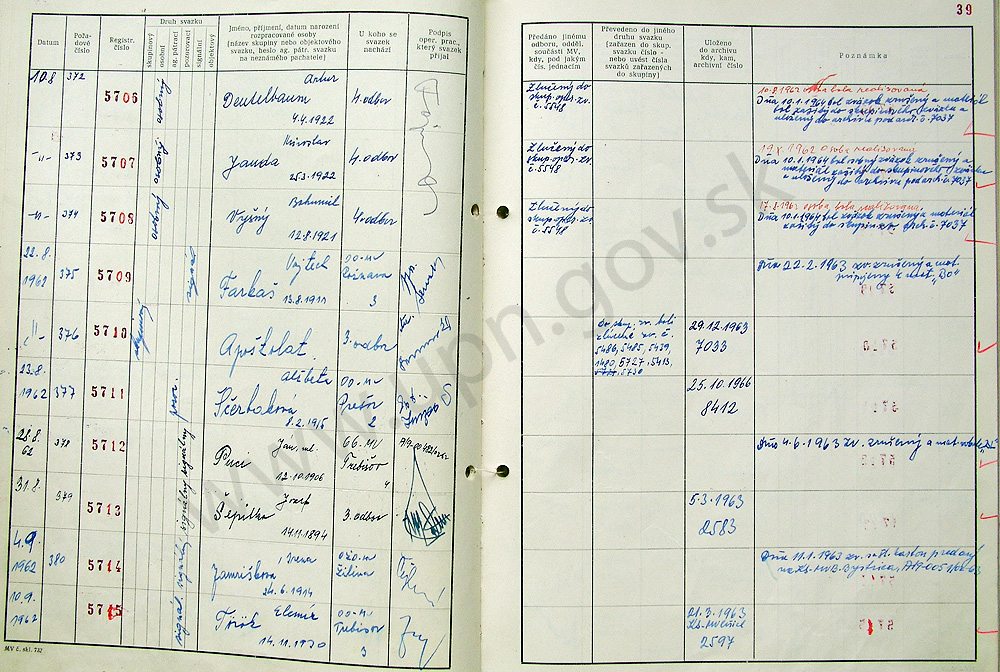 39
Datum
Pořadové číslo
Registr. číslo
Druh svazku
skupinový
osobní
ag. pátrací
pozorovací
signální
objektový
Jméno, příjmení, datum narození
rozpracované osoby
(název skupiny nebo objektového
svazku, heslo ag. pátr. svazku
na neznámého pachatele)
U koho se
svazek
nachází
Podpis
oper. prac.,
který svazek
přijal
Předáno jinému
odboru, odděl.
součásti MV,
kdy, pod jakým
čís. jednacím
Převedeno do jiného
druhu svazku
(zařazen do skup.
svazku číslo -
nebo uvést čísla
svazků zařazených
do skupiny)
Uloženo
do archivu
kdy, kam,
archivní číslo
Poznámka
10.8 372 5706 osobný
Artur
Deutelbaum
4.4.1922
4. odbor
Zlučený do
skup. oper. zv.
č. 5548
10.8.1962 osoba bola realisovaná
Dňa 10.1.1964 bol zväzok zrušený a materiál
bol zažitý do skupinového zväzku a
uložený do archivu pod arch. č. 7037
-"- 373 5707 osobný
Miroslav
Janda
25.3.1922
4. odbor
Zlučený do
skup. oper. zv.
č. 5548
Osoba realisovaná
Dňa 10.1.1964 bol osobný zväzok zrušený a
materiál zažitý do skupinového zväzku
a uložený do archivu pod arch. č. 7037
-"- 374 5708 osobný
Bohumil
Vyšný
12.8.1921
4. odbor
Zlučený do
skup. oper. zv.
č. 5548
osoba bola realisovaná
Dňa 10.1.1964 bol zväzok zrušený a materiál
zažitý do skup. zv. arch. č. 7037
22.8.
1962 375 5709 signal
Vojtech
Farkaš
13.8.1911
OO-MV
Rožňava
3
Dňa 22.2.1963 zv. zrušený a mat.
pripojený k mat. "Do"
-"- 376 5710 skupinový
Apoštolat.
3. odbor
do skup. zv. boli
zlúčené zv. č.
5486, 5485, 5439,
5480, 5727, 5413,
5730
29.12.1963
7033
23.8.
1962 377 5711 pozor.
Alžbeta
Ščerbaková
8.2.1915
OO-MV
Prešov
2
25.10.1966
8412
28.8.
62 378 5712 signálny
Ján, ml.
Puci
12.10.1906
OO-MV
Trebišov
4
Dňa 4.6.1963 zv. zrušený a mat.
31.8. 379 5713 signálny
Jozef
Šepitka
14.11.1894
3. odbor
5.3.1963
2583
4.9.
1962 380 5714 signálny
Irena
Jamriškova
24.6.1914
OO-MV
Žilina
Dňa 11.1.1963 zv. predaný
na KS-MV B. Bystrica,
10.9.
1962 5715 signál.
Elemír
Török
14.11.1930
OO-MV
Trebišov
3
21.3.1963
KS-MV Košice
2597
MV č. skl. 732
www.upn.gov.sk